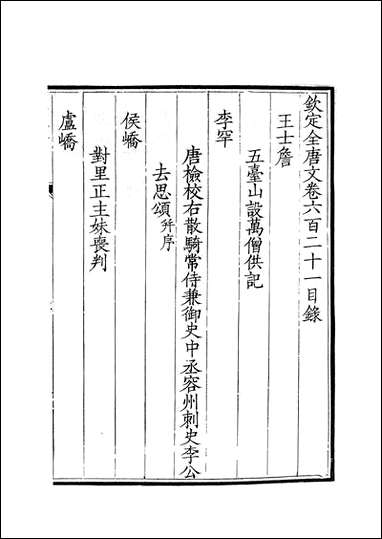 欽定全唐文卷六百二十一目錄
王士詹
五臺山設萬僧供記
李罕
唐檢校右散騎常侍兼御史中丞容州刺史李公
去思頌并序
侯嶠
對里正主妹喪判
盧嶠